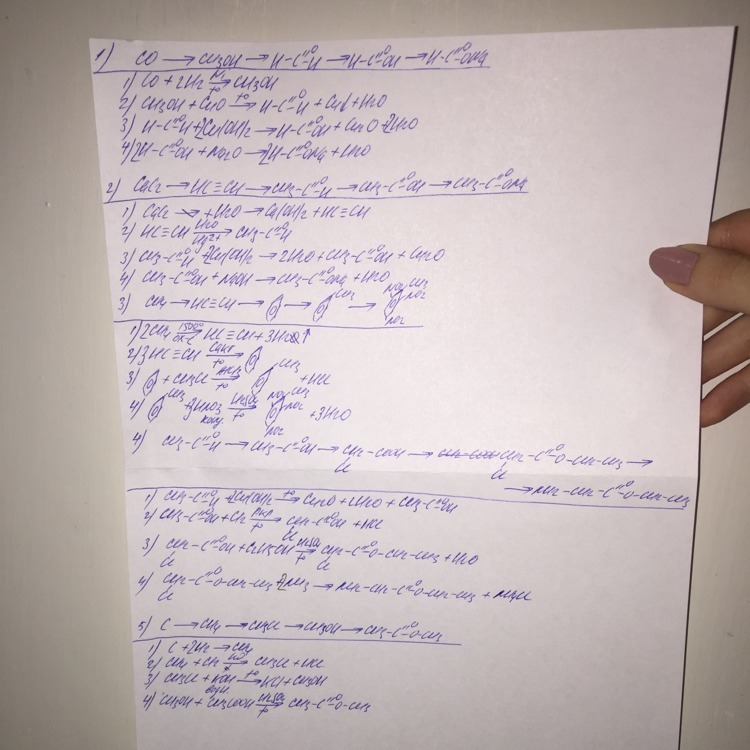 1) CO → CH3OH → H-C=O-H → H-C=O-OH → H-C=O-ONa
1) CO + 2H2 → CH3OH
2) CH3OH + CuO t° → H-C=O-H + Cu + H2O
3) H-C=O-H + 2Cu(OH)2 → H-C=O-OH + Cu2O + 2H2O
4) 2H-C=O-OH + Na2O → 2H-C=O-ONa + H2O
2) CaC2 → HC≡CH → CH3-C=O-H → CH3-C=O-OH → CH3-C=O-ONa
1) CaC2 + H2O → Ca(OH)2 + HC≡CH
2) HC≡CH H2O Hg2+ → CH3-C=O-H
3) CH3-C=O-H + 2Cu(OH)2 → 2H2O + CH3-C=O-OH + Cu2O
4) CH3-C=O-OH + NaOH → CH3-C=O-ONa + H2O
3) CH4 → HC≡CH → → CH3 → NO2 CH3 NO2 NO2
1) 2CH4 1500° → HC≡CH + 3H2↑
2) 3HC≡CH Cакт t° →
3) + CH3Cl AlCl3 t° → CH3 + HCl
4) CH3 + 3HNO3 конц. H2SO4 t° → NO2 CH3 NO2 NO2 + 3H2O
4) CH3-C=O-H → CH3-C=O-OH → CH2-COOH Cl → CH2-C=O-O-CH2-CH3 Cl →
→ NH2-CH2-C=O-O-CH2-CH3
1) CH3-C=O-H + 2Cu(OH)2 t° → Cu2O + 2H2O + CH3-C=O-OH
2) CH3-C=O-OH + Cl2 → CH2-C=O-OH Cl + HCl
3) CH2-C=O-OH Cl + C2H5OH H2SO4 t° → CH2-C=O-O-CH2-CH3 Cl + H2O
4) CH2-C=O-O-CH2-CH3 Cl + 2NH3 → NH2-CH2-C=O-O-CH2-CH3 + NH4Cl
5) C → CH4 → CH3Cl → CH3OH → CH3-C=O-O-CH3
1) C + 2H2 → CH4
2) CH4 + Cl2 hν → CH3Cl + HCl
3) CH3Cl + KOH водн. t° → KCl + CH3OH
4) CH3OH + CH3COOH H2SO4 t° → CH3-C=O-O-CH3